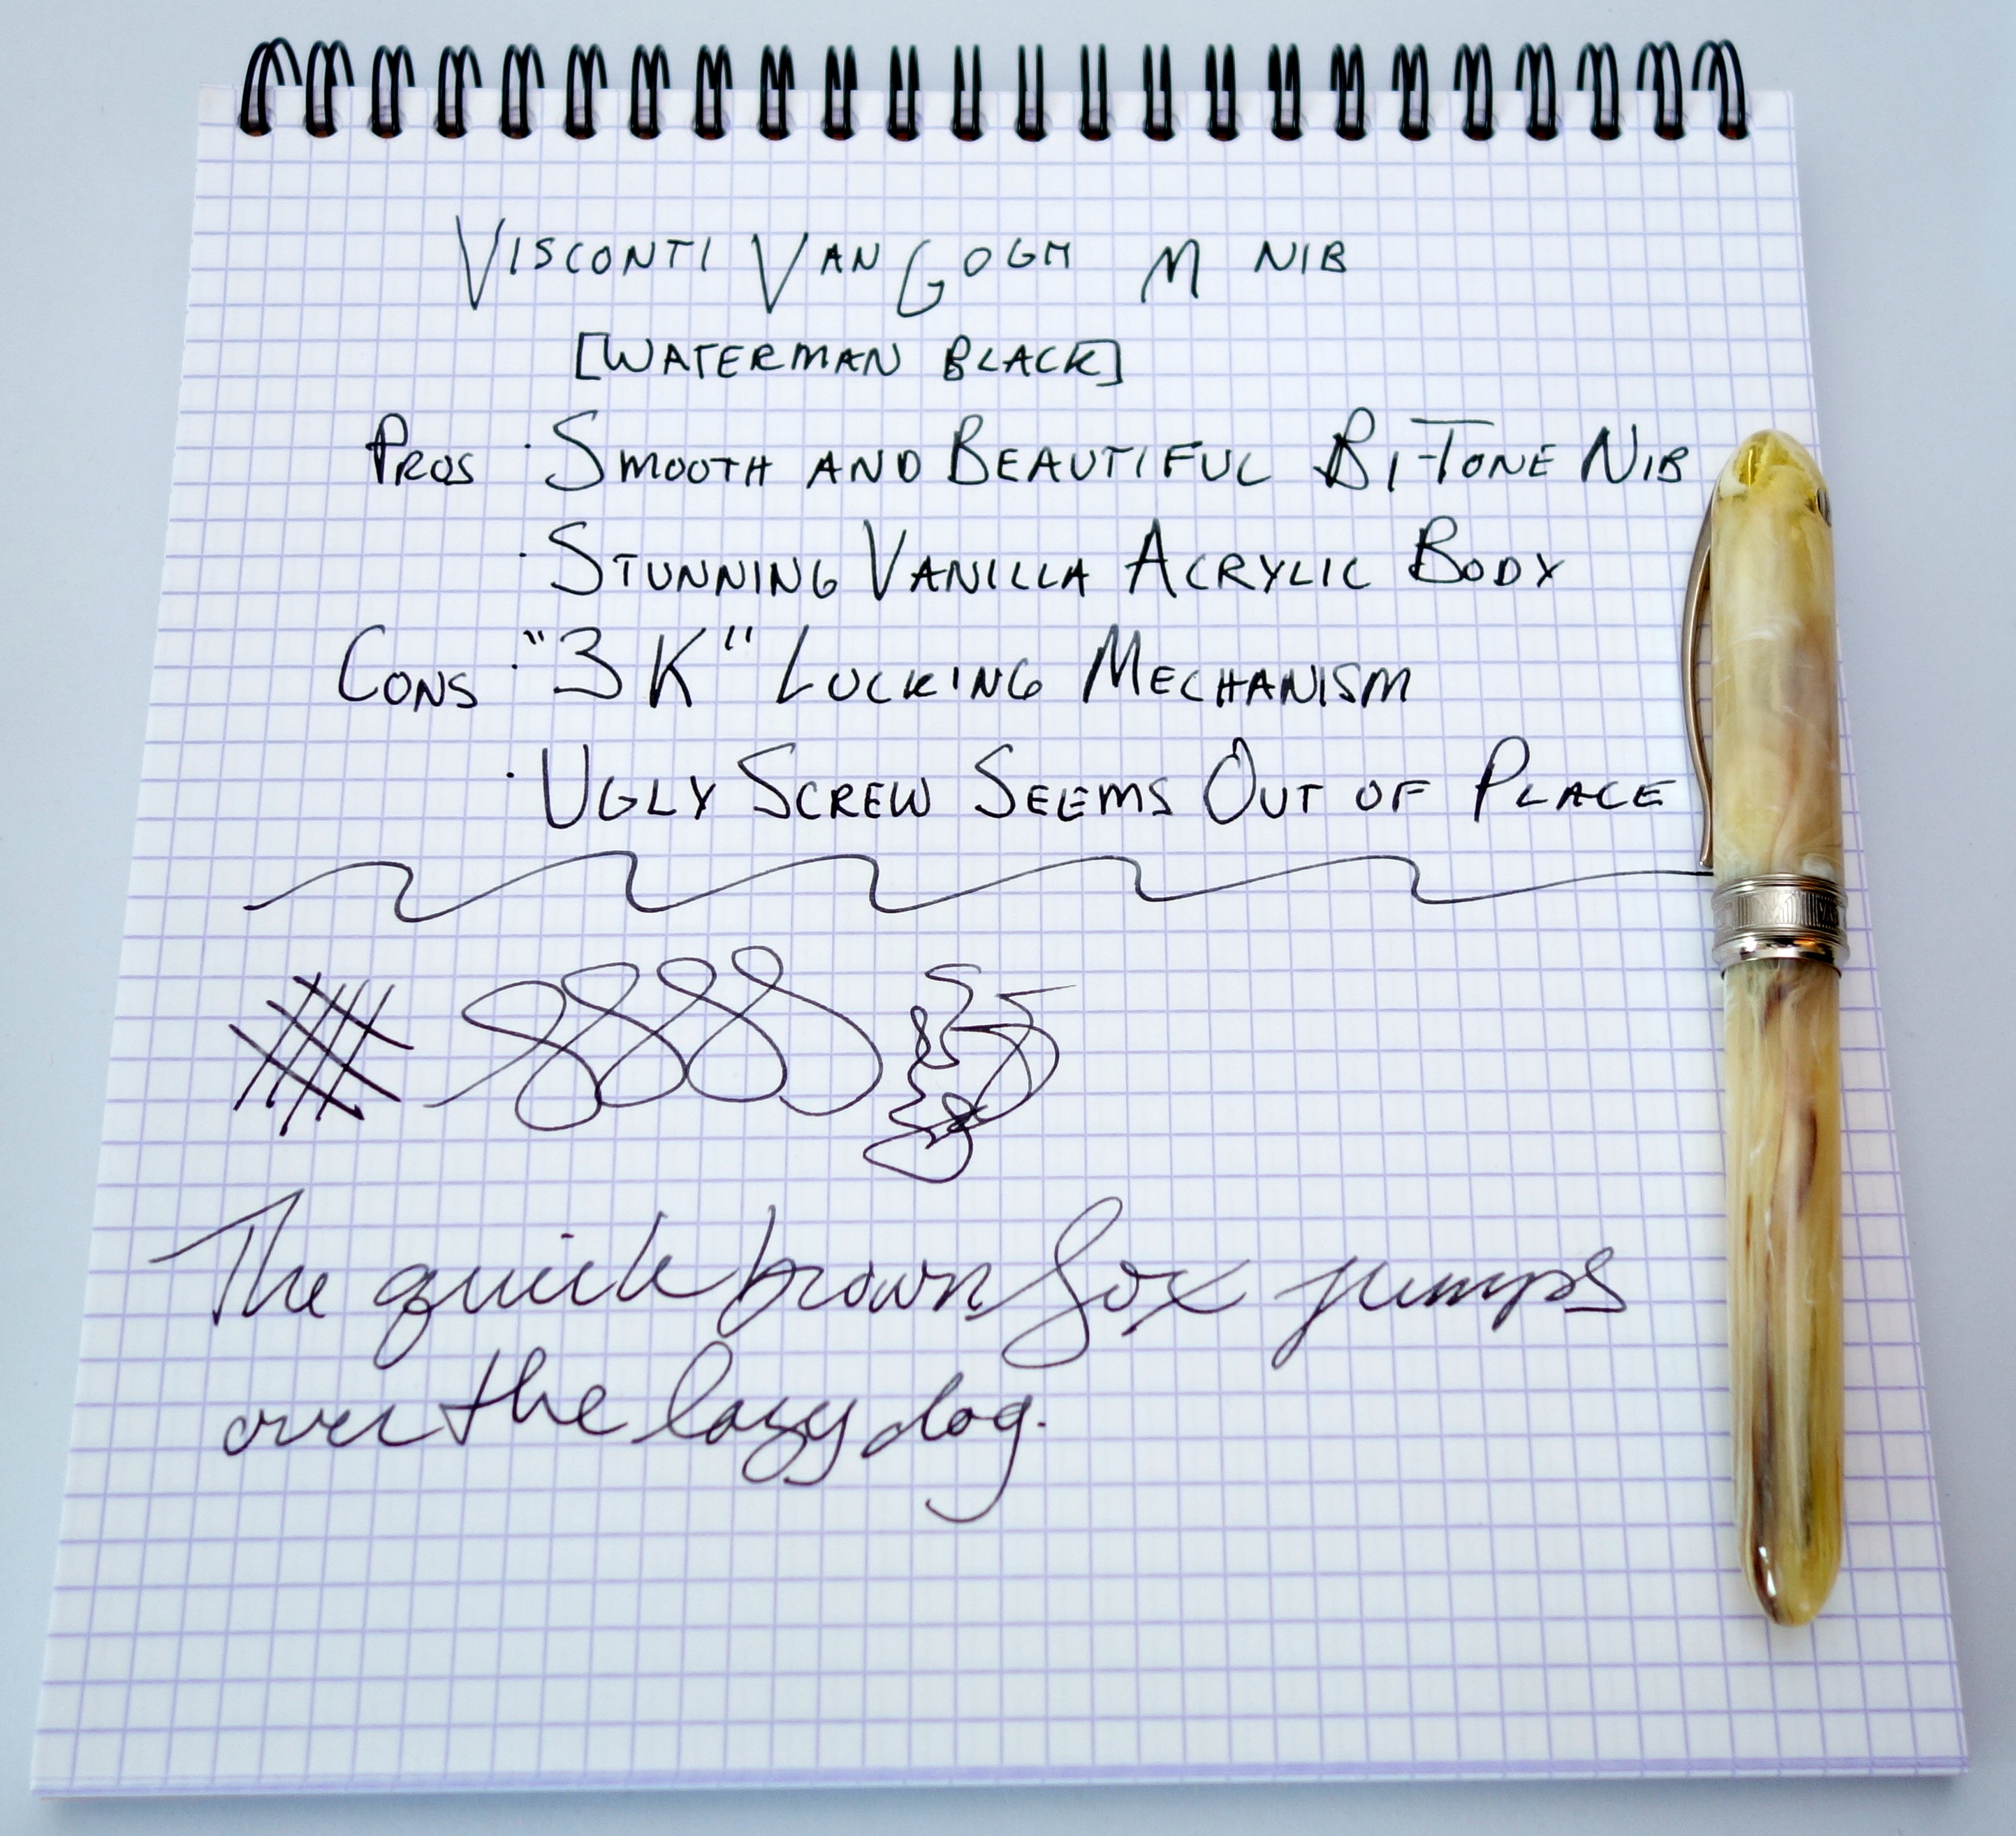 VISCONTI VAN GOGH M NIB
[WATERMAN BLACK]
PROS · SMOOTH AND BEAUTIFUL BI-TONE NIB
· STUNNING VANILLA ACRYLIC BODY
CONS · "3K" LOCKING MECHANISM
· UGLY SCREW SEEMS OUT OF PLACE
The quick brown fox jumps
over the lazy dog.